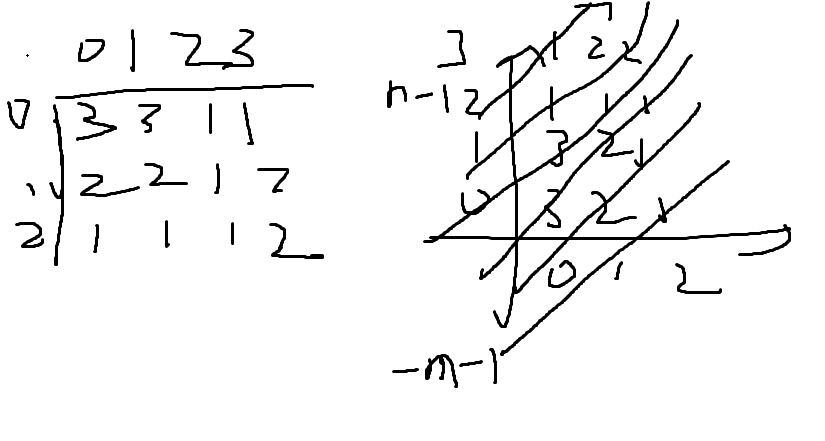 0 1 2 3
0 3 3 1 1
2 2 1 2
2 1 1 1 2
3 1 2 2
n-1 2 1 1 1
1 3 2 1
0 3 2 1
0 1 2
-m-1